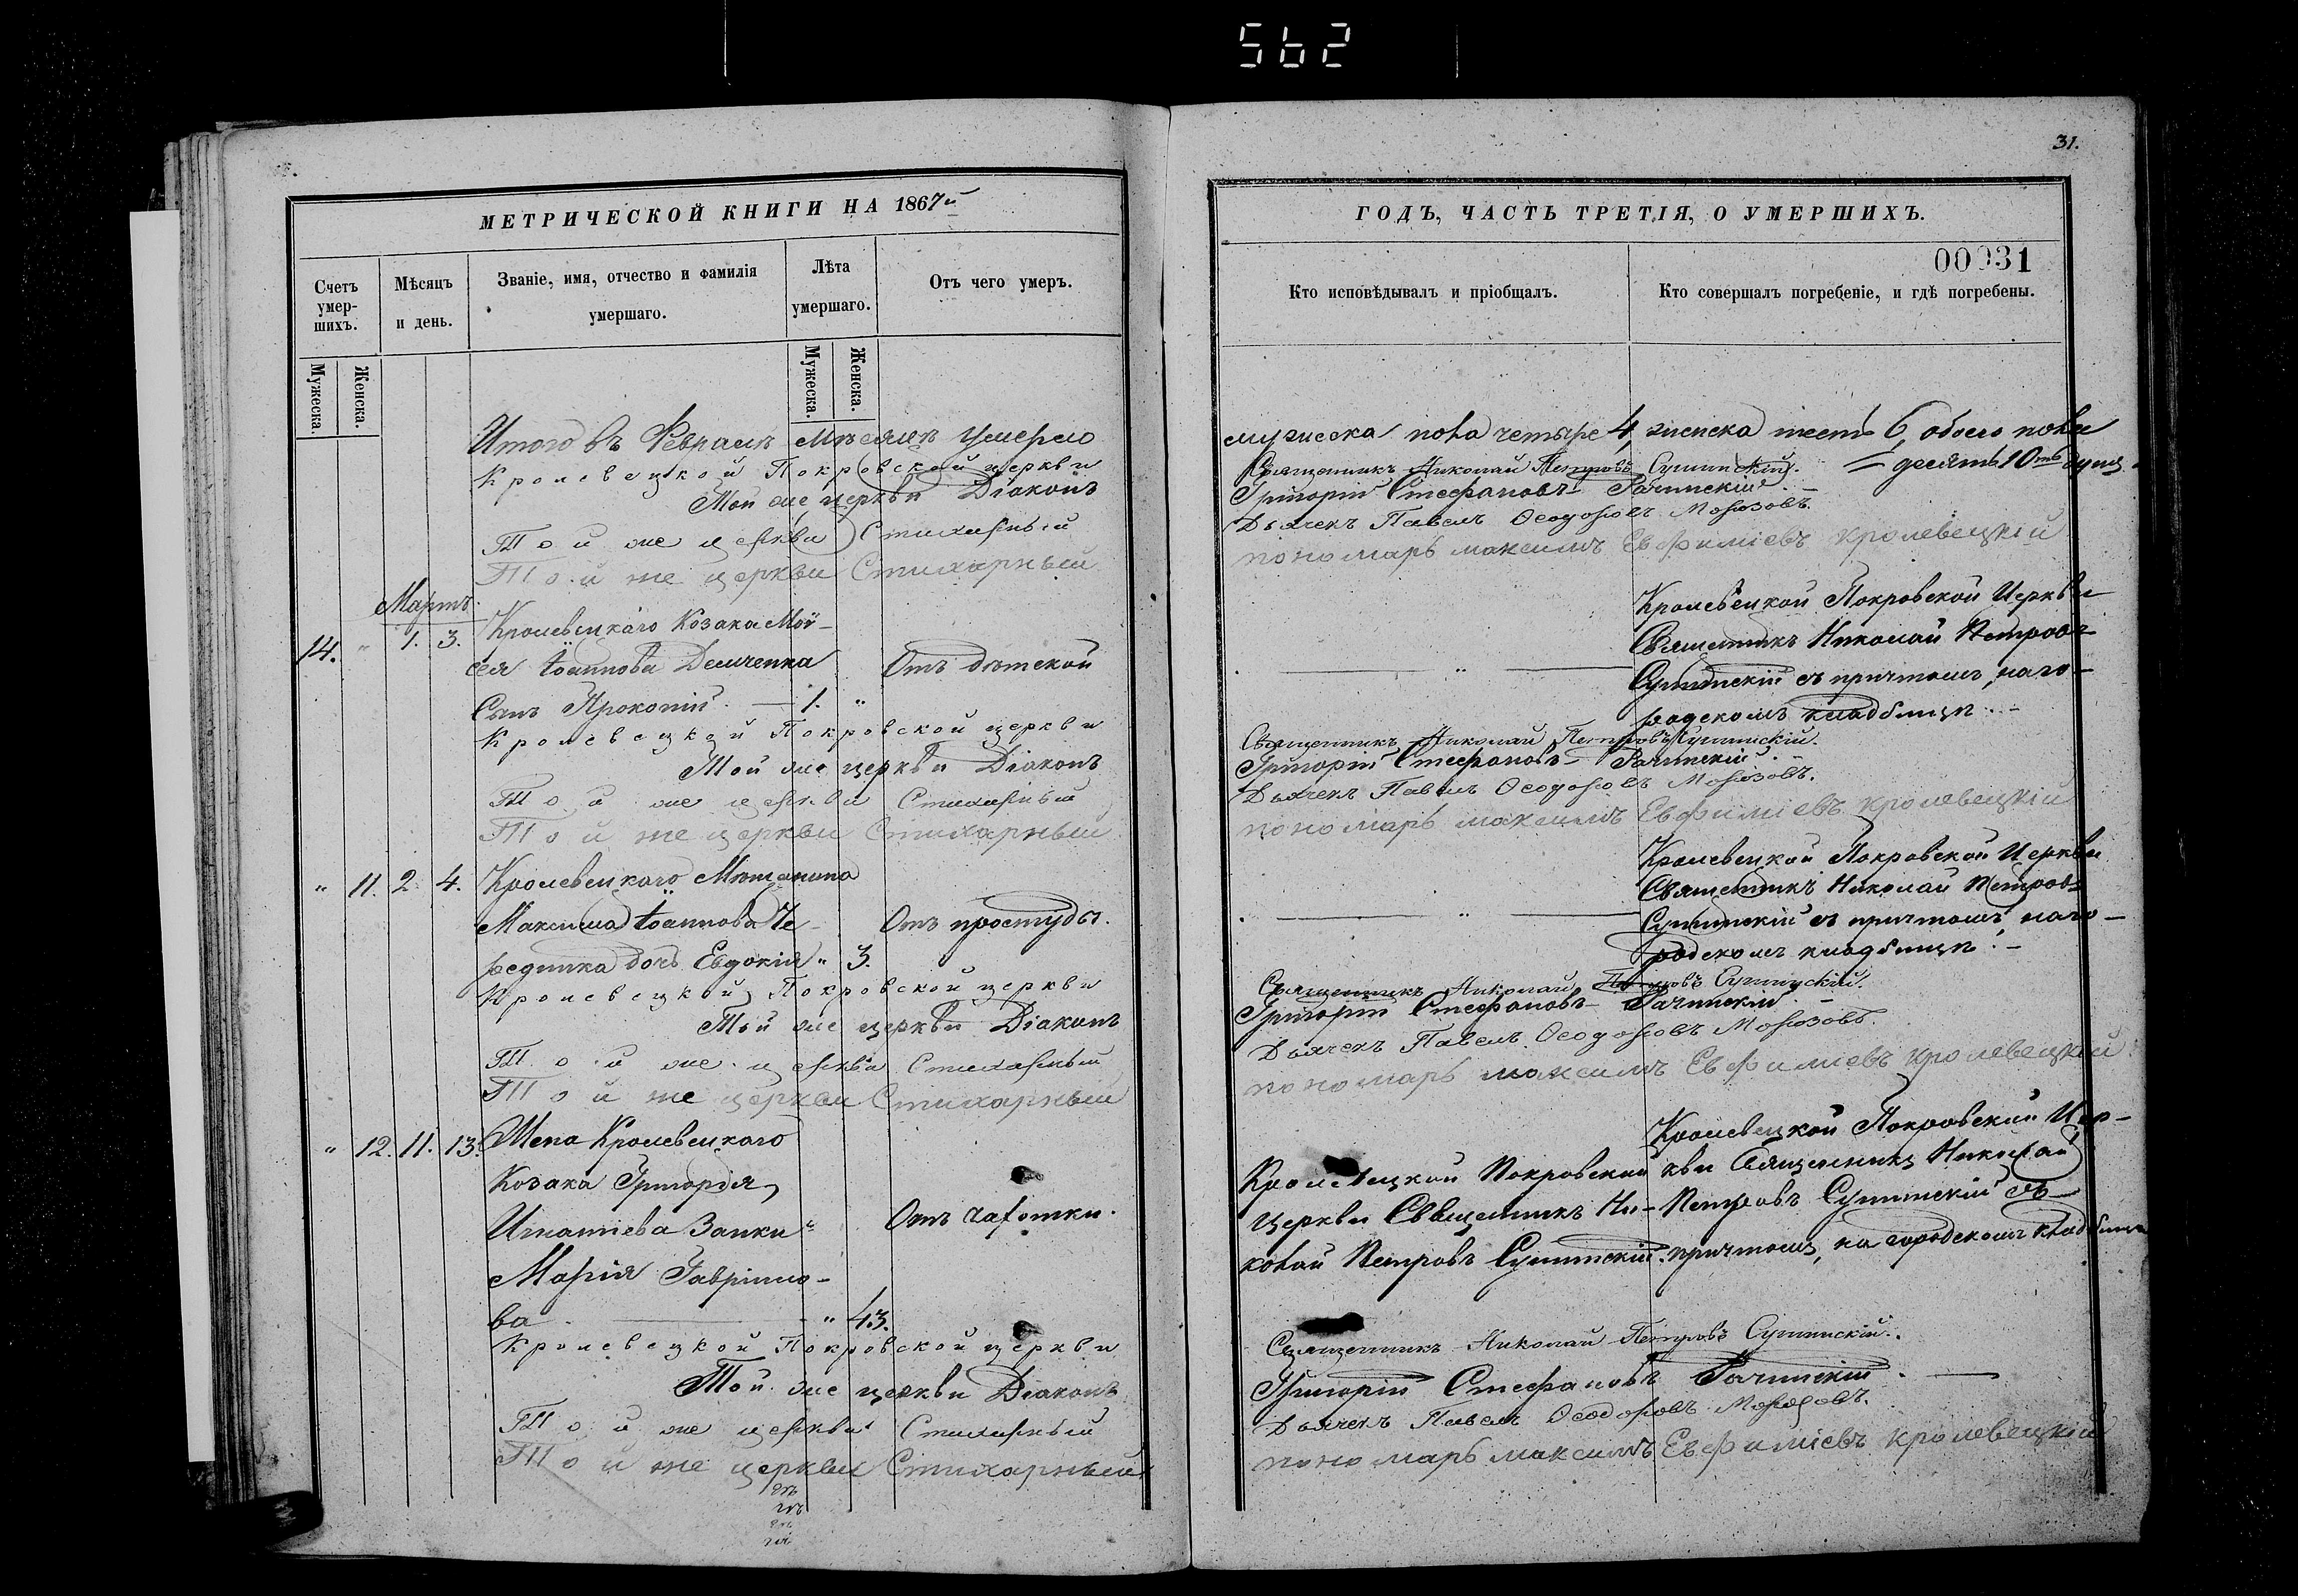 562
31.
МЕТРИЧЕСКОЙ КНИГИ НА 1867й
ГОДЪ, ЧАСТЬ ТРЕТІЯ, О УМЕРШИХЪ.
00031
Счетъ умер-
шихъ.
Мѣсяцъ
и день.
Званіе, имя, отчество и фамилія
умершаго.
Лѣта
умершаго.
Отъ чего умеръ.
Кто исповѣдывалъ и пріобщалъ.
Кто совершалъ погребеніе, и гдѣ погребены.
Мужеска.
Женска.
Мужеска.
Женска.
Итого въ Февралѣ мѣсяцѣ умерло
мужеска пола четыре 4, женска шесть 6, обоего пола
= десять 10ть душъ.
Кролевецкой Покровской церкви
Священникъ Николай Петровъ Сушинскій.
Той же церкви Діаконъ
Григорій Стефановъ Рачинскій.
Той же церкви Стихарный
Дьячекъ Павелъ Ѳеодоровъ Морозовъ.
Той же церкви Стихарный
пономарь максимъ Евфиміевъ кролевецкій
Мартъ.
14. " 1. 3. Кролевецкаго Козака Мой-
сея Іоаннова Демченка
Отъ дѣтской
Сынъ Прокопій. — 1. "
Кролевецкой Покровской Церкви
Священникъ Николай Петровъ
Сушинскій съ причтомъ, на го-
родскомъ кладбищѣ. —
Кролевецкой Покровской церкви
Священникъ Николай Петровъ Сушинскій.
Той же церкви Діаконъ
Григорій Стефановъ Рачинскій.
Той же церкви Стихарный
Дьячекъ Павелъ Ѳеодоровъ Морозовъ.
Той же церкви Стихарный
пономарь максимъ Евфиміевъ кролевецкій
" 11. 2. 4. Кролевецкаго Мѣщанина
Максима Іоаннова Че-
Отъ простуды.
редника дочь Евдокія " 3.
Кролевецкой Покровской Церкви
Священникъ Николай Петровъ
Сушинскій съ причтомъ, на го-
родскомъ кладбищѣ. —
Кролевецкой Покровской церкви
Священникъ Николай Петровъ Сушинскій.
Той же церкви Діаконъ
Григорій Стефановъ Рачинскій. —
Той же церкви Стихарный
Дьячекъ Павелъ Ѳеодоровъ Морозовъ.
Той же церкви Стихарный
пономарь максимъ Евфиміевъ кролевецкій
" 12. 11. 13. Жена Кролевецкаго
Козака Григорія
Игнатіева Заики
Отъ чахотки.
Марія Гавріило-
ва. " 43.
Кролевецкой Покровской
церкви Священникъ Ни-
колай Петровъ Сушинскій.
Кролевецкой Покровской Цер-
кви Священникъ Николай
Петровъ Сушинскій съ
причтомъ, на городскомъ кладбищѣ
Кролевецкой Покровской церкви
Священникъ Николай Петровъ Сушинскій.
Той же церкви Діаконъ
Григорій Стефановъ Рачинскій. —
Той же церкви Стихарный
Дьячекъ Павелъ Ѳеодоровъ Морозовъ.
Той же церкви Стихарный
пономарь максимъ Евфиміевъ кролевецкій